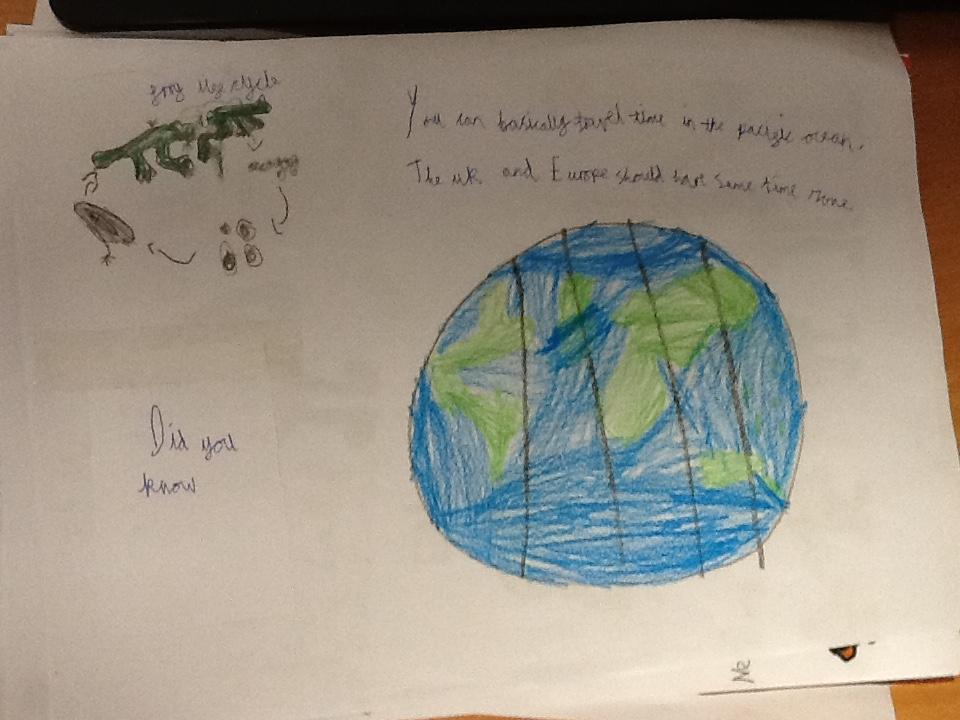 frog life cycle
You can basically travel time in the pacific ocean.
The uk and Europe should have same time zone
Did you
know